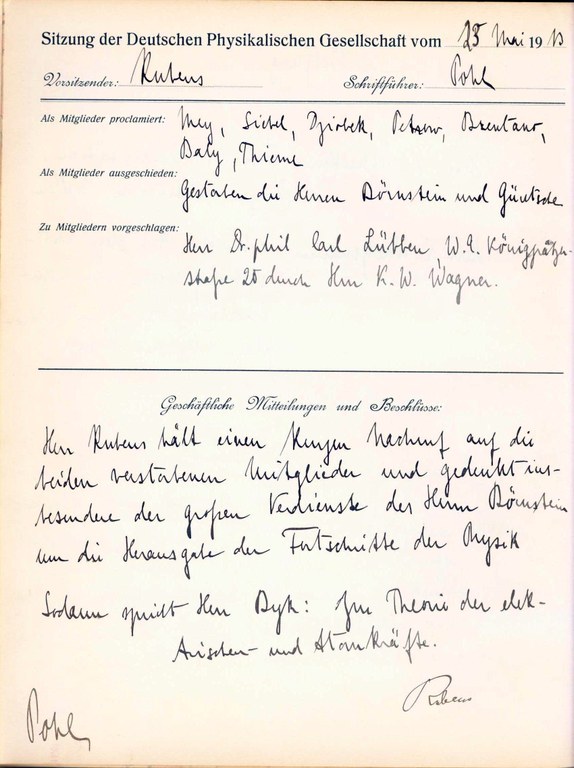 Sitzung der Deutschen Physikalischen Gesellschaft vom 23 Mai 1913
Vorsitzender: Rubens Schriftführer: Pohl
Als Mitglieder proclamiert: Mey, Siebel, Dziobek, Petzow, Brentano,
Baly, Thieme
Als Mitglieder ausgeschieden:
Gestorben die Herren Börnstein und Güntsche
Zu Mitgliedern vorgeschlagen:
Herr Dr. phil Carl Lübben W.
straße 20 durch Hrn K. W. Wagner.
Geschäftliche Mitteilungen und Beschlüsse:
Herr Rubens hält einen kurzen Nachruf auf die
beiden verstorbenen Mitglieder und gedenkt ins-
besondere der großen Verdienste des Herrn Börnstein
um die Herausgabe der Fortschritte der Physik
Sodann spricht Herr Byk: Zur Theorie der elek-
trischen und Atomkräfte.
Rubens
Pohl